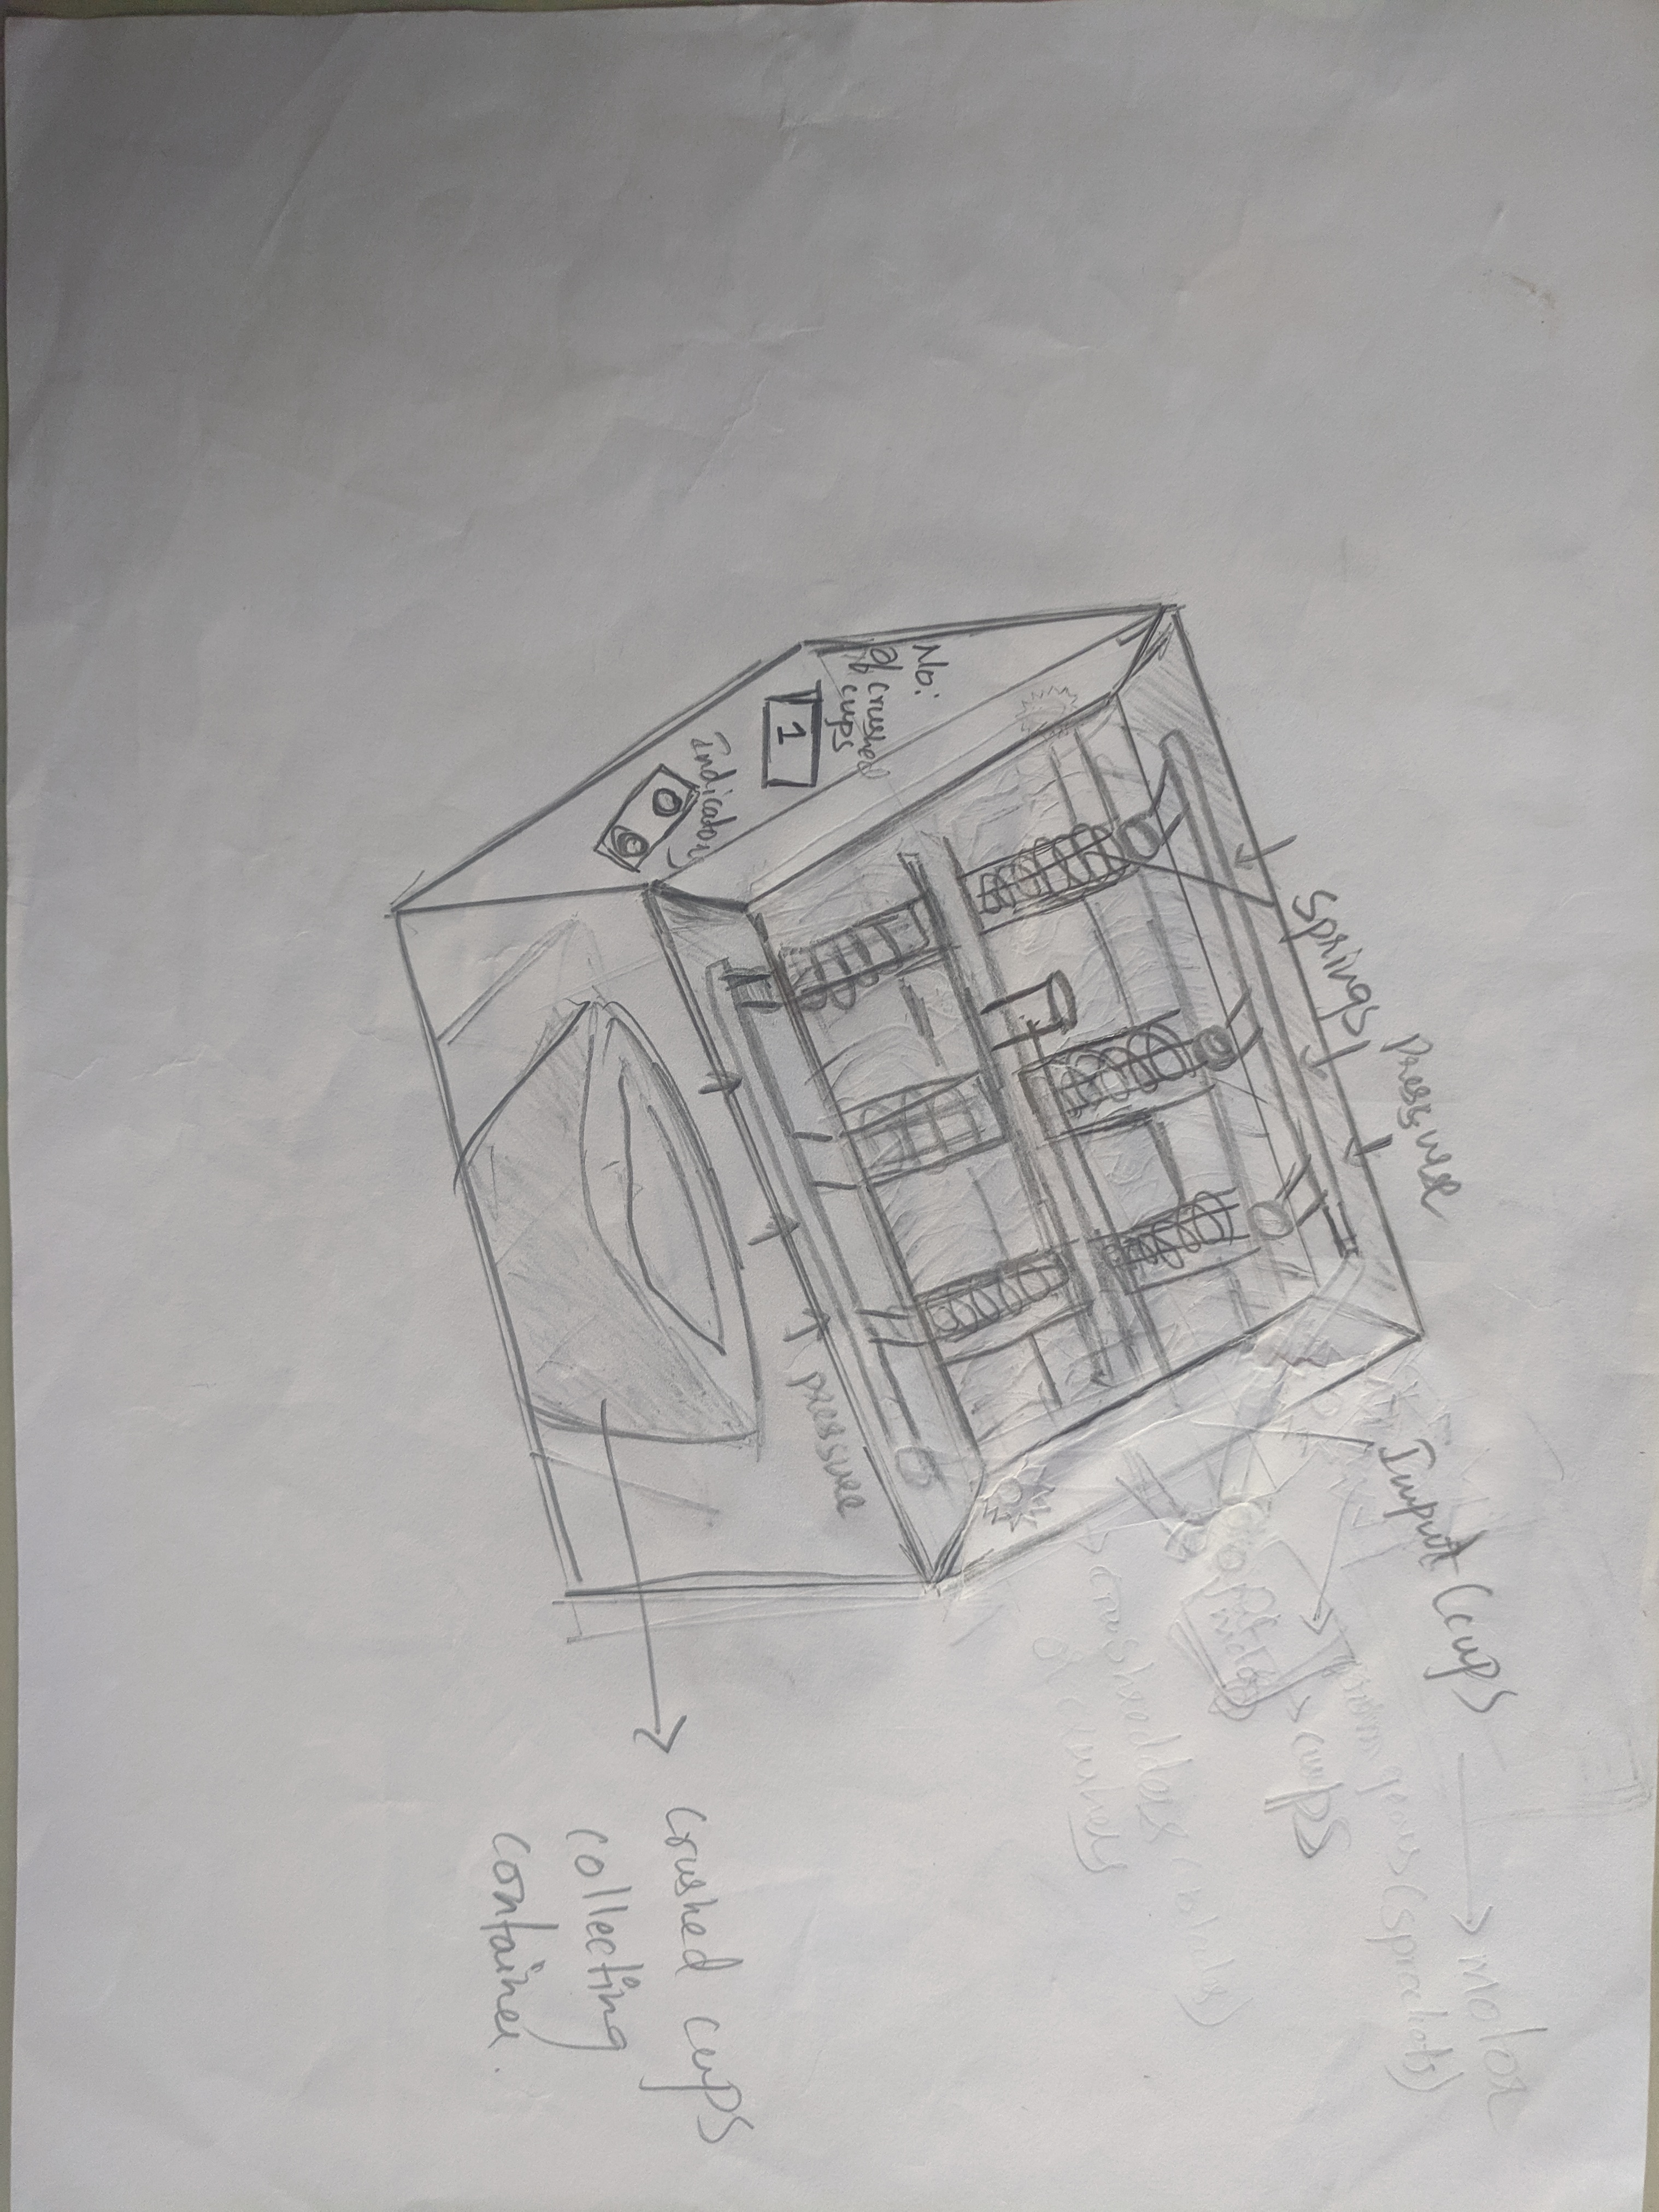 Pressure
Springs
Input (cups
motor
gears (sprockets)
cups
motor
crushers
No:
of crushed
cups
1
Indicator
pressure
crushed cups
collecting
container.